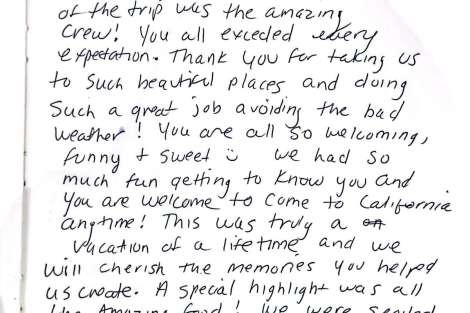 of the trip was the amazing
crew! You all exceded every
expectation. Thank you for taking us
to such beautiful places and doing
such a great job avoiding the bad
weather! You are all so welcoming,
funny + sweet ☺ we had so
much fun getting to know you and
you are welcome to come to California
anytime! This was truly a
vacation of a lifetime and we
will cherish the memories you helped
us create. A special highlight was all
the amazing food! We were